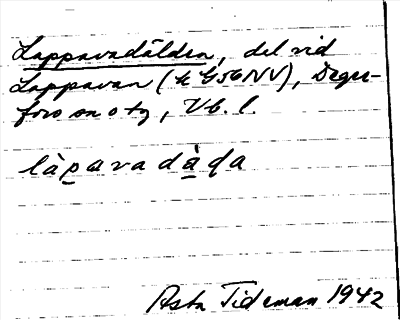 Lappavadälden, del vid
Lappavan (k G56NV), Deger-
fors sn o tg, Vb. l.
làpavadàḍa
Asta Tideman 1942